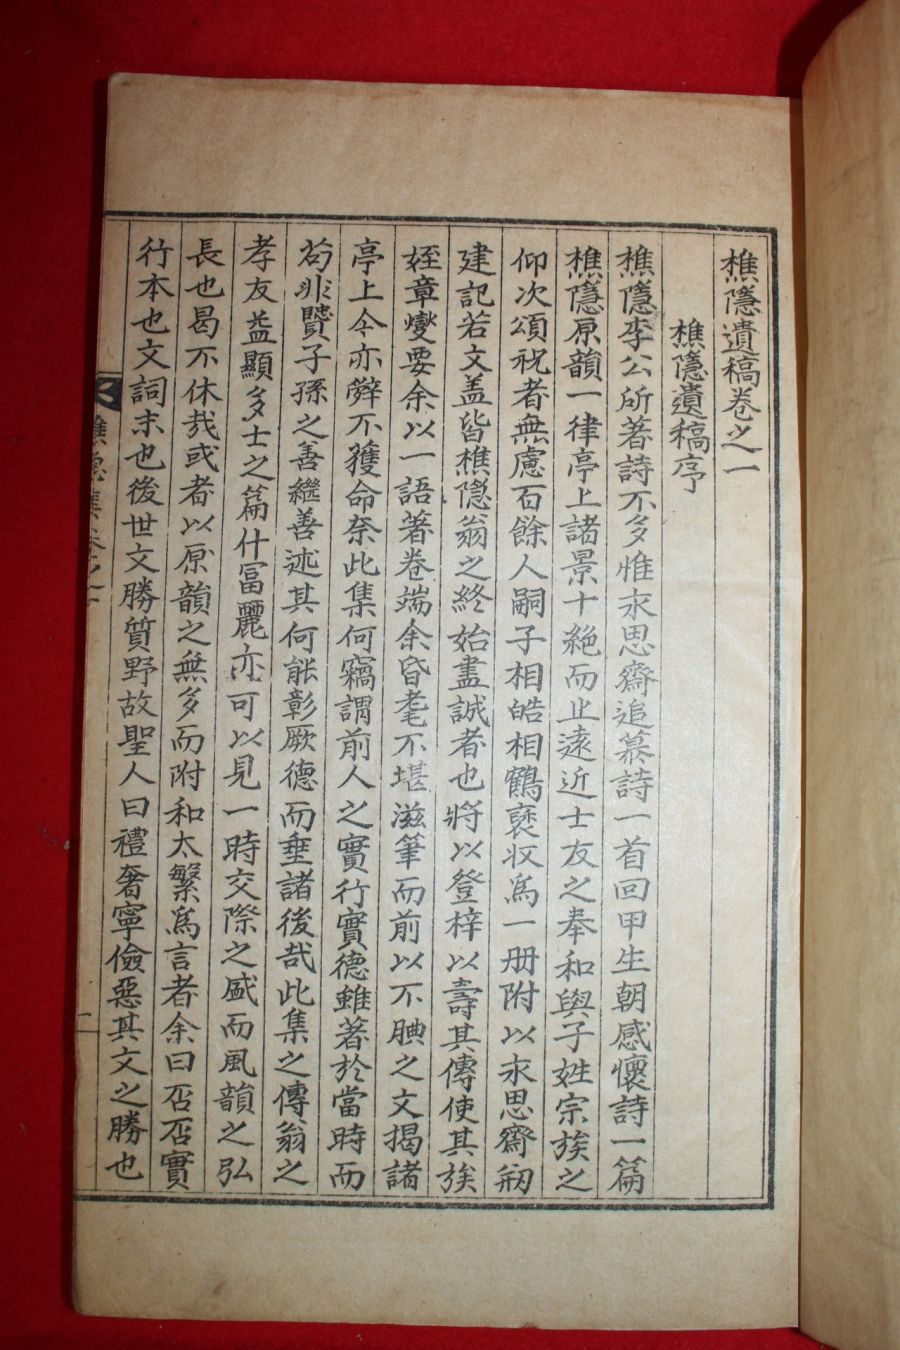 樵隱遺稿卷之一
樵隱遺稿序
樵隱李公所著詩不多惟永思齋追慕詩一首回甲生朝感懷詩一篇
樵隱原韻一律亭上諸景十絶而止遠近士友之奉和與子姓宗族之
仰次頌祝者無慮百餘人嗣子相皓相鶴裒収爲一册附以永思齋刱
建記若文盖皆樵隱翁之終始盡誠者也將以登梓以壽其傳使其族
姪章燮要余以一語著卷端余昏耄不堪滋筆而前以不腆之文揭諸
亭上今亦辤不獲命奈此集何竊謂前人之實行實德雖著於當時而
苟非賢子孫之善繼善述其何能彰厥德而垂諸後哉此集之傳翁之
孝友益顯多士之篇什冨麗亦可以見一時交際之盛而風韻之弘
長也曷不休哉或者以原韻之無多而附和太繁爲言者余曰否否實
行本也文詞末也後世文勝質野故聖人曰禮奢寧儉惡其文之勝也
樵隱集卷之一
二